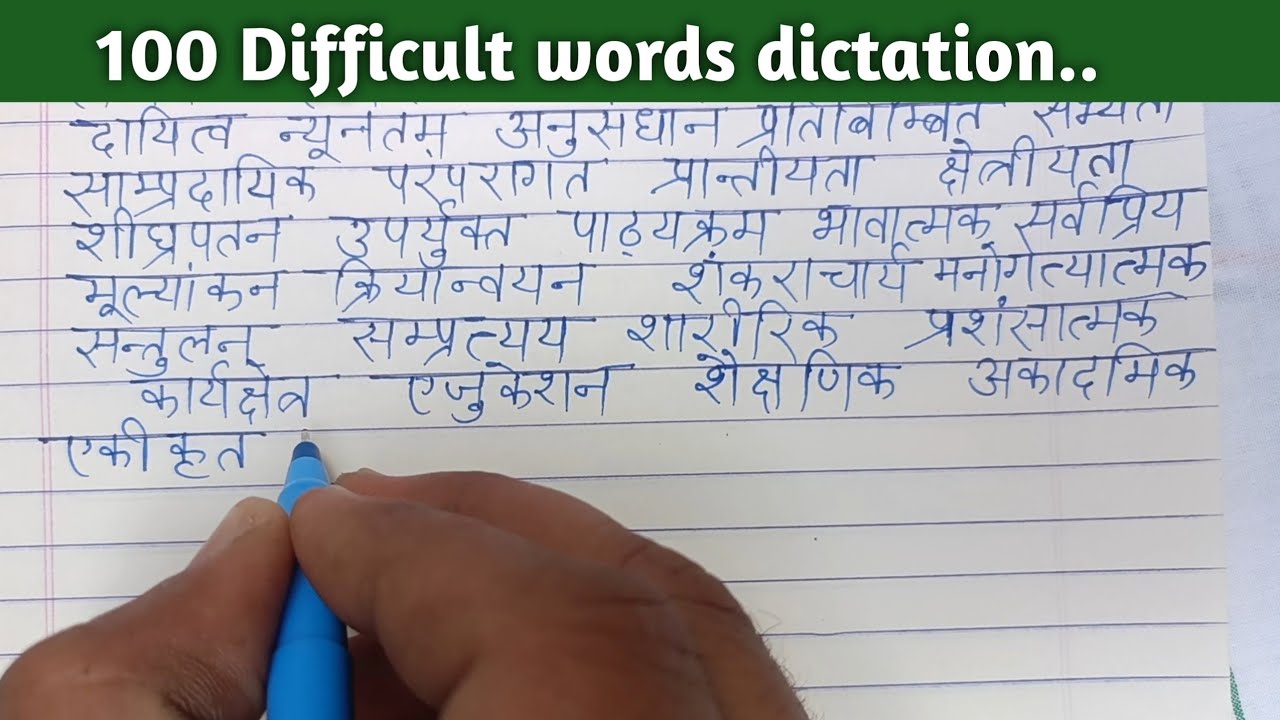 100 Difficult words dictation..
दायित्व न्यूनतम अनुसंधान प्रतिबिम्बित सभ्यता
साम्प्रदायिक परंपरागत प्रान्तीयता क्षेत्रीयता
शीघ्रपतन उपर्युक्त पाठ्यक्रम भावात्मक सर्वप्रिय
मूल्यांकन क्रियान्वयन शंकराचार्य मनोगत्यात्मक
सन्तुलन सम्प्रत्यय शारीरिक प्रशंसात्मक
कार्यक्षेत्र एजुकेशन शैक्षणिक अकादमिक
एकीकृत